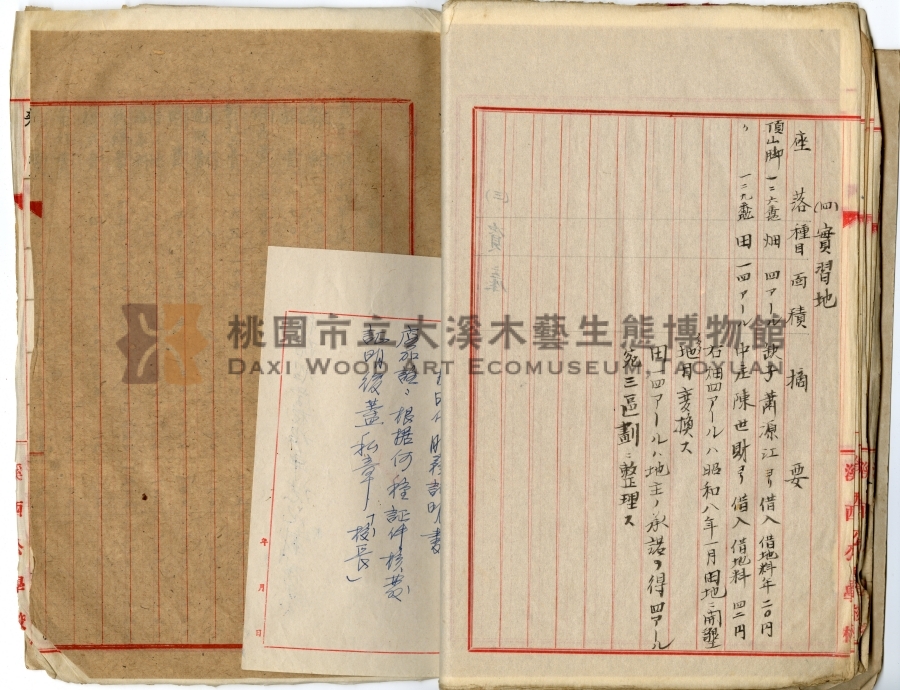 (四)實習地
座落種目面積摘要
頂山脚 一二六番 畑 四アール 蕭源江ヨリ借入 借地料年二〇円
〃 一二九番 田 一四アール 中庄陳世財ヨリ借入 借地料 四二円
右畑四アールハ昭和八年一月田地ニ開墾
地目変換ス
田一四アールハ地主ノ承諾ヲ得四アール
宛三區劃ニ整理ス
(三)資産
証明書
應加註：根據何種証件核發
証明後蓋私章「校長」
年 月 日
桃園市立大溪木藝生態博物館
DAXI WOOD ART ECOMUSEUM, TAOYUAN
溪西公學校